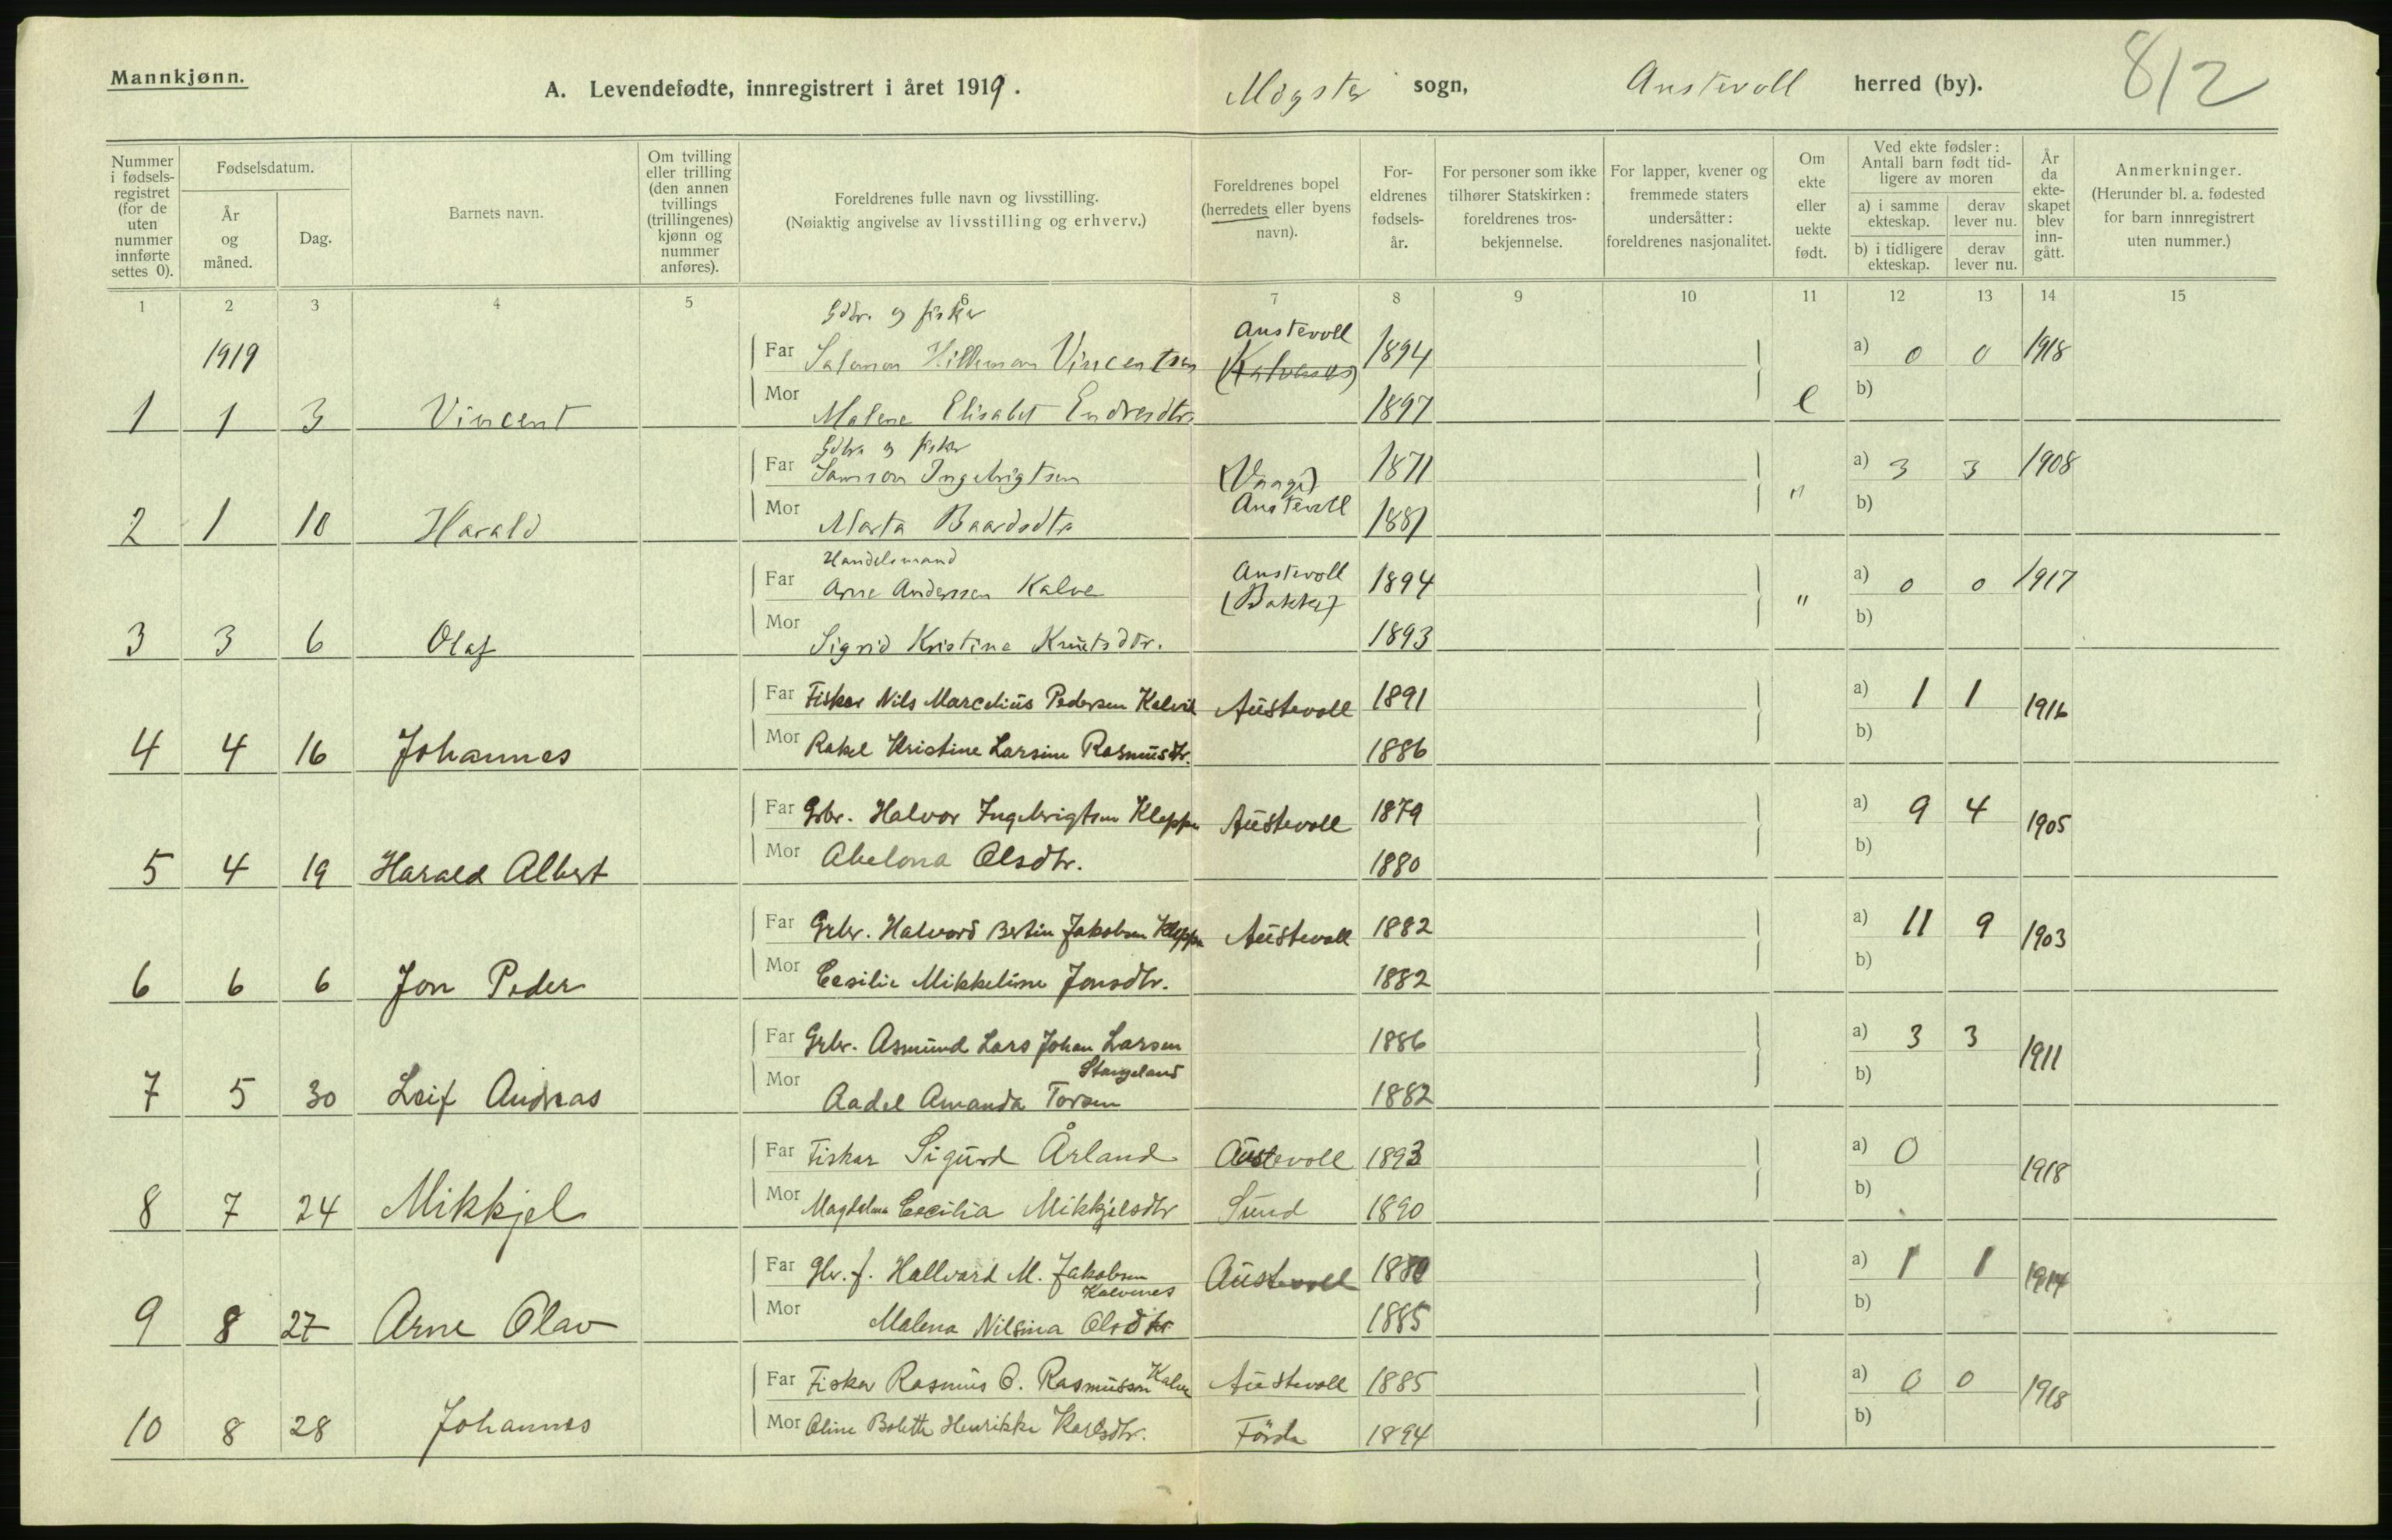 Mannkjønn.
A. Levendefødte, innregistrert i året 1919.
Møgster sogn, Austevoll herred (by).
812
Nummer i fødsels-registret (for de uten nummer innførte settes 0).
Fødselsdatum.
År og måned.
Dag.
Barnets navn.
Om tvilling eller trilling (den annen tvillings (trillingenes) kjønn og nummer anføres).
Foreldrenes fulle navn og livsstilling.
(Nøiaktig angivelse av livsstilling og erhverv.)
Foreldrenes bopel (herredets eller byens navn).
For-eldrenes fødsels-år.
For personer som ikke tilhører Statskirken: foreldrenes tros-bekjennelse.
For lapper, kvener og fremmede staters undersåtter: foreldrenes nasjonalitet.
Om ekte eller uekte født.
Ved ekte fødsler: Antall barn født tid-ligere av moren
a) i samme ekteskap.
derav lever nu.
b) i tidligere ekteskap.
derav lever nu.
År da ekte-skapet blev inn-gått.
Anmerkninger.
(Herunder bl. a. fødested for barn innregistrert uten nummer.)
1 2 3 4 5 6 7 8 9 10 11 12 13 14 15
Gdbr. og fisker
1919 Far Salomon Vincentsen Austevoll 1894 a) 0 0 1918
(Kalvenes)
1 1 3 Vincent Mor Malene Elisabet Endresdtr. 1897 e b)
Gdbr. og fisker
Far Samson Ingebrigtsen (Vaage) 1871 a) 3 3 1908
2 1 10 Harald Mor Marta Baardsdtr Austevoll 1881 " b)
Handelsmand
Far Arne Anderssen Kalve Austevoll 1894 a) 0 0 1917
(Bakke)
3 3 6 Olaf Mor Sigrid Kristine Knutsdtr. 1893 " b)
Far Fisker Nils Marcelius Pedersen Kalvik Austevoll 1891 a) 1 1 1916
4 4 16 Johannes Mor Rakel Kristine Larsine Rasmusdtr. 1886 b)
Far Grbr. Halvor Ingebrigtsen Kleppe Austevoll 1879 a) 9 4 1905
5 4 19 Harald Albert Mor Abelona Olsdtr. 1880 b)
Far Grbr. Halvard Bertin Jakobsen Kleppe Austevoll 1882 a) 11 9 1903
6 6 6 Jon Peder Mor Cesilie Mikkeline Jonsdtr. 1882 b)
Far Grbr. Asmund Lars Johan Larsen 1886 a) 3 3 1911
Stangeland
7 5 30 Leif Andreas Mor Aadel Amanda Torsen 1882 b)
Far Fiskar Sigurd Årland Austevoll 1893 a) 0 1918
8 7 24 Mikkjel Mor Magdelena Cecilia Mikkjelsdtr Sund 1890 b)
Far Gbr. f. Hallvard M. Jakobsen Austevoll 1880 a) 1 1 1914
Kalvenes
9 8 27 Arne Olav Mor Malena Nilsina Olsdtr 1885 b)
Far Fisker Rasmus O. Rasmussen Kalve Austevoll 1885 a) 0 0 1918
10 8 28 Johannes Mor Oline Bolette Henrikke Karlsdtr. Förde 1894 b)